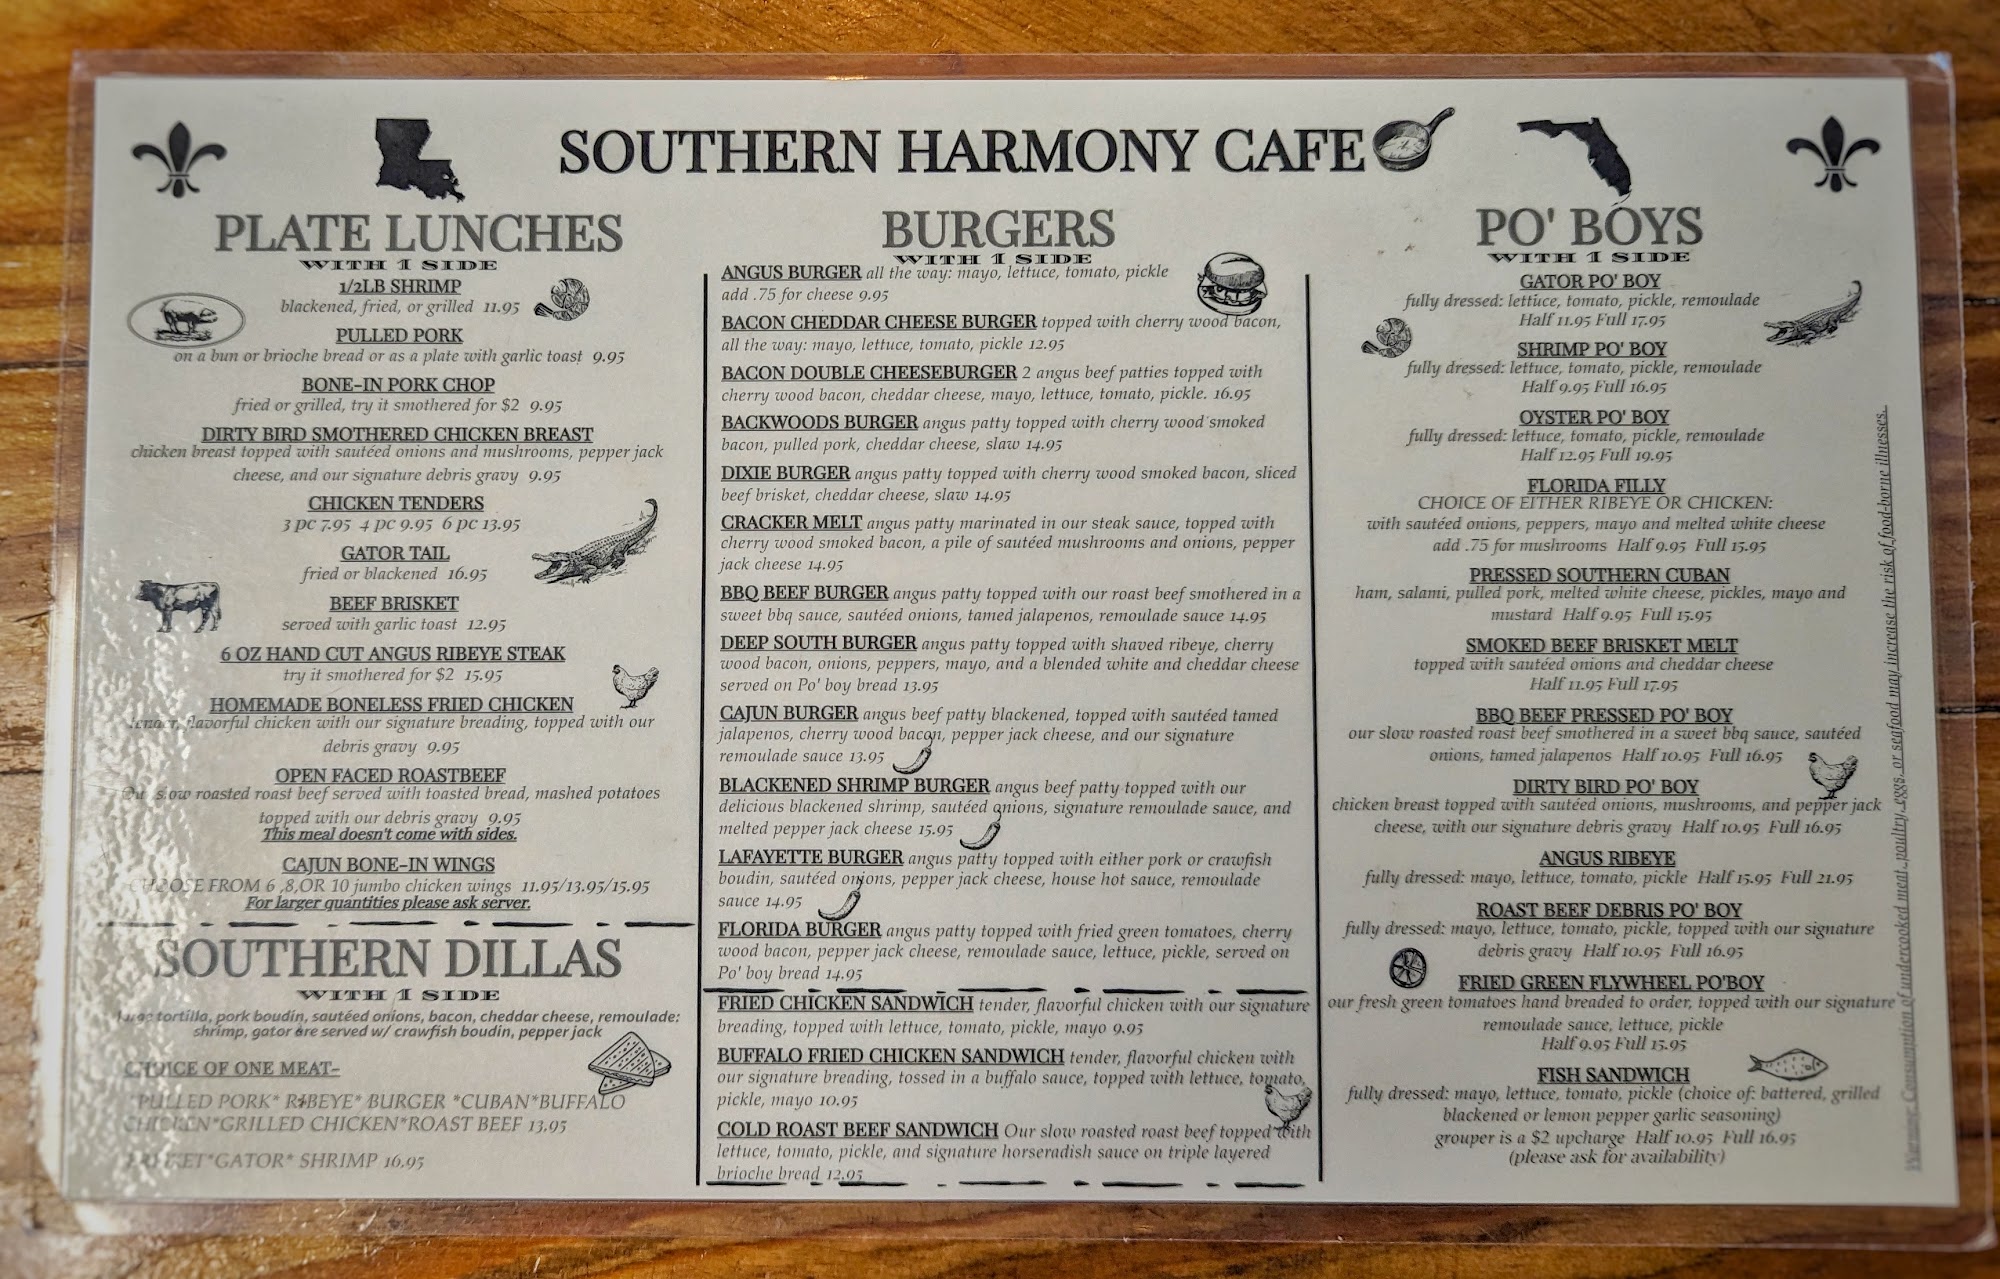 SOUTHERN HARMONY CAFE
PLATE LUNCHES
WITH 1 SIDE
1/2LB SHRIMP
blackened, fried, or grilled 11.95
PULLED PORK
on a bun or brioche bread or as a plate with garlic toast 9.95
BONE-IN PORK CHOP
fried or grilled, try it smothered for $2 9.95
DIRTY BIRD SMOTHERED CHICKEN BREAST
chicken breast topped with sautéed onions and mushrooms, pepper jack
cheese, and our signature debris gravy 9.95
CHICKEN TENDERS
3 pc 7.95 4 pc 9.95 6 pc 13.95
GATOR TAIL
fried or blackened 16.95
BEEF BRISKET
served with garlic toast 12.95
6 OZ HAND CUT ANGUS RIBEYE STEAK
try it smothered for $2 15.95
HOMEMADE BONELESS FRIED CHICKEN
tender, flavorful chicken with our signature breading, topped with our
debris gravy 9.95
OPEN FACED ROASTBEEF
Our slow roasted roast beef served with toasted bread, mashed potatoes
topped with our debris gravy 9.95
This meal doesn't come with sides.
CAJUN BONE-IN WINGS
CHOOSE FROM 6 ,8,OR 10 jumbo chicken wings 11.95/13.95/15.95
For larger quantities please ask server.
SOUTHERN DILLAS
WITH 1 SIDE
large tortilla, pork boudin, sautéed onions, bacon, cheddar cheese, remoulade:
shrimp, gator are served w/ crawfish boudin, pepper jack
CHOICE OF ONE MEAT-
*PULLED PORK* RIBEYE* BURGER *CUBAN*BUFFALO
CHICKEN*GRILLED CHICKEN*ROAST BEEF 13.95
BRISKET*GATOR* SHRIMP 16.95
BURGERS
WITH 1 SIDE
ANGUS BURGER all the way: mayo, lettuce, tomato, pickle
add .75 for cheese 9.95
BACON CHEDDAR CHEESE BURGER topped with cherry wood bacon,
all the way: mayo, lettuce, tomato, pickle 12.95
BACON DOUBLE CHEESEBURGER 2 angus beef patties topped with
cherry wood bacon, cheddar cheese, mayo, lettuce, tomato, pickle. 16.95
BACKWOODS BURGER angus patty topped with cherry wood smoked
bacon, pulled pork, cheddar cheese, slaw 14.95
DIXIE BURGER angus patty topped with cherry wood smoked bacon, sliced
beef brisket, cheddar cheese, slaw 14.95
CRACKER MELT angus patty marinated in our steak sauce, topped with
cherry wood smoked bacon, a pile of sautéed mushrooms and onions, pepper
jack cheese 14.95
BBQ BEEF BURGER angus patty topped with our roast beef smothered in a
sweet bbq sauce, sautéed onions, tamed jalapenos, remoulade sauce 14.95
DEEP SOUTH BURGER angus patty topped with shaved ribeye, cherry
wood bacon, onions, peppers, mayo, and a blended white and cheddar cheese
served on Po' boy bread 13.95
CAJUN BURGER angus beef patty blackened, topped with sautéed tamed
jalapenos, cherry wood bacon, pepper jack cheese, and our signature
remoulade sauce 13.95
BLACKENED SHRIMP BURGER angus beef patty topped with our
delicious blackened shrimp, sautéed onions, signature remoulade sauce, and
melted pepper jack cheese 15.95
LAFAYETTE BURGER angus patty topped with either pork or crawfish
boudin, sautéed onions, pepper jack cheese, house hot sauce, remoulade
sauce 14.95
FLORIDA BURGER angus patty topped with fried green tomatoes, cherry
wood bacon, pepper jack cheese, remoulade sauce, lettuce, pickle, served on
Po' boy bread 14.95
FRIED CHICKEN SANDWICH tender, flavorful chicken with our signature
breading, topped with lettuce, tomato, pickle, mayo 9.95
BUFFALO FRIED CHICKEN SANDWICH tender, flavorful chicken with
our signature breading, tossed in a buffalo sauce, topped with lettuce, tomato,
pickle, mayo 10.95
COLD ROAST BEEF SANDWICH Our slow roasted roast beef topped with
lettuce, tomato, pickle, and signature horseradish sauce on triple layered
brioche bread 12.95
PO' BOYS
WITH 1 SIDE
GATOR PO' BOY
fully dressed: lettuce, tomato, pickle, remoulade
Half 11.95 Full 17.95
SHRIMP PO' BOY
fully dressed: lettuce, tomato, pickle, remoulade
Half 9.95 Full 16.95
OYSTER PO' BOY
fully dressed: lettuce, tomato, pickle, remoulade
Half 12.95 Full 19.95
FLORIDA FILLY
CHOICE OF EITHER RIBEYE OR CHICKEN:
with sautéed onions, peppers, mayo and melted white cheese
add .75 for mushrooms Half 9.95 Full 15.95
PRESSED SOUTHERN CUBAN
ham, salami, pulled pork, melted white cheese, pickles, mayo and
mustard Half 9.95 Full 15.95
SMOKED BEEF BRISKET MELT
topped with sautéed onions and cheddar cheese
Half 11.95 Full 17.95
BBQ BEEF PRESSED PO' BOY
our slow roasted roast beef smothered in a sweet bbq sauce, sautéed
onions, tamed jalapenos Half 10.95 Full 16.95
DIRTY BIRD PO' BOY
chicken breast topped with sautéed onions, mushrooms, and pepper jack
cheese, with our signature debris gravy Half 10.95 Full 16.95
ANGUS RIBEYE
fully dressed: mayo, lettuce, tomato, pickle Half 15.95 Full 21.95
ROAST BEEF DEBRIS PO' BOY
fully dressed: mayo, lettuce, tomato, pickle, topped with our signature
debris gravy Half 10.95 Full 16.95
FRIED GREEN FLYWHEEL PO'BOY
our fresh green tomatoes hand breaded to order, topped with our signature
remoulade sauce, lettuce, pickle
Half 9.95 Full 15.95
FISH SANDWICH
fully dressed: mayo, lettuce, tomato, pickle (choice of: battered, grilled
blackened or lemon pepper garlic seasoning)
grouper is a $2 upcharge Half 10.95 Full 16.95
(please ask for availability)
Warning: Consumption of undercooked meat, poultry, eggs, or seafood may increase the risk of food-borne illnesses.